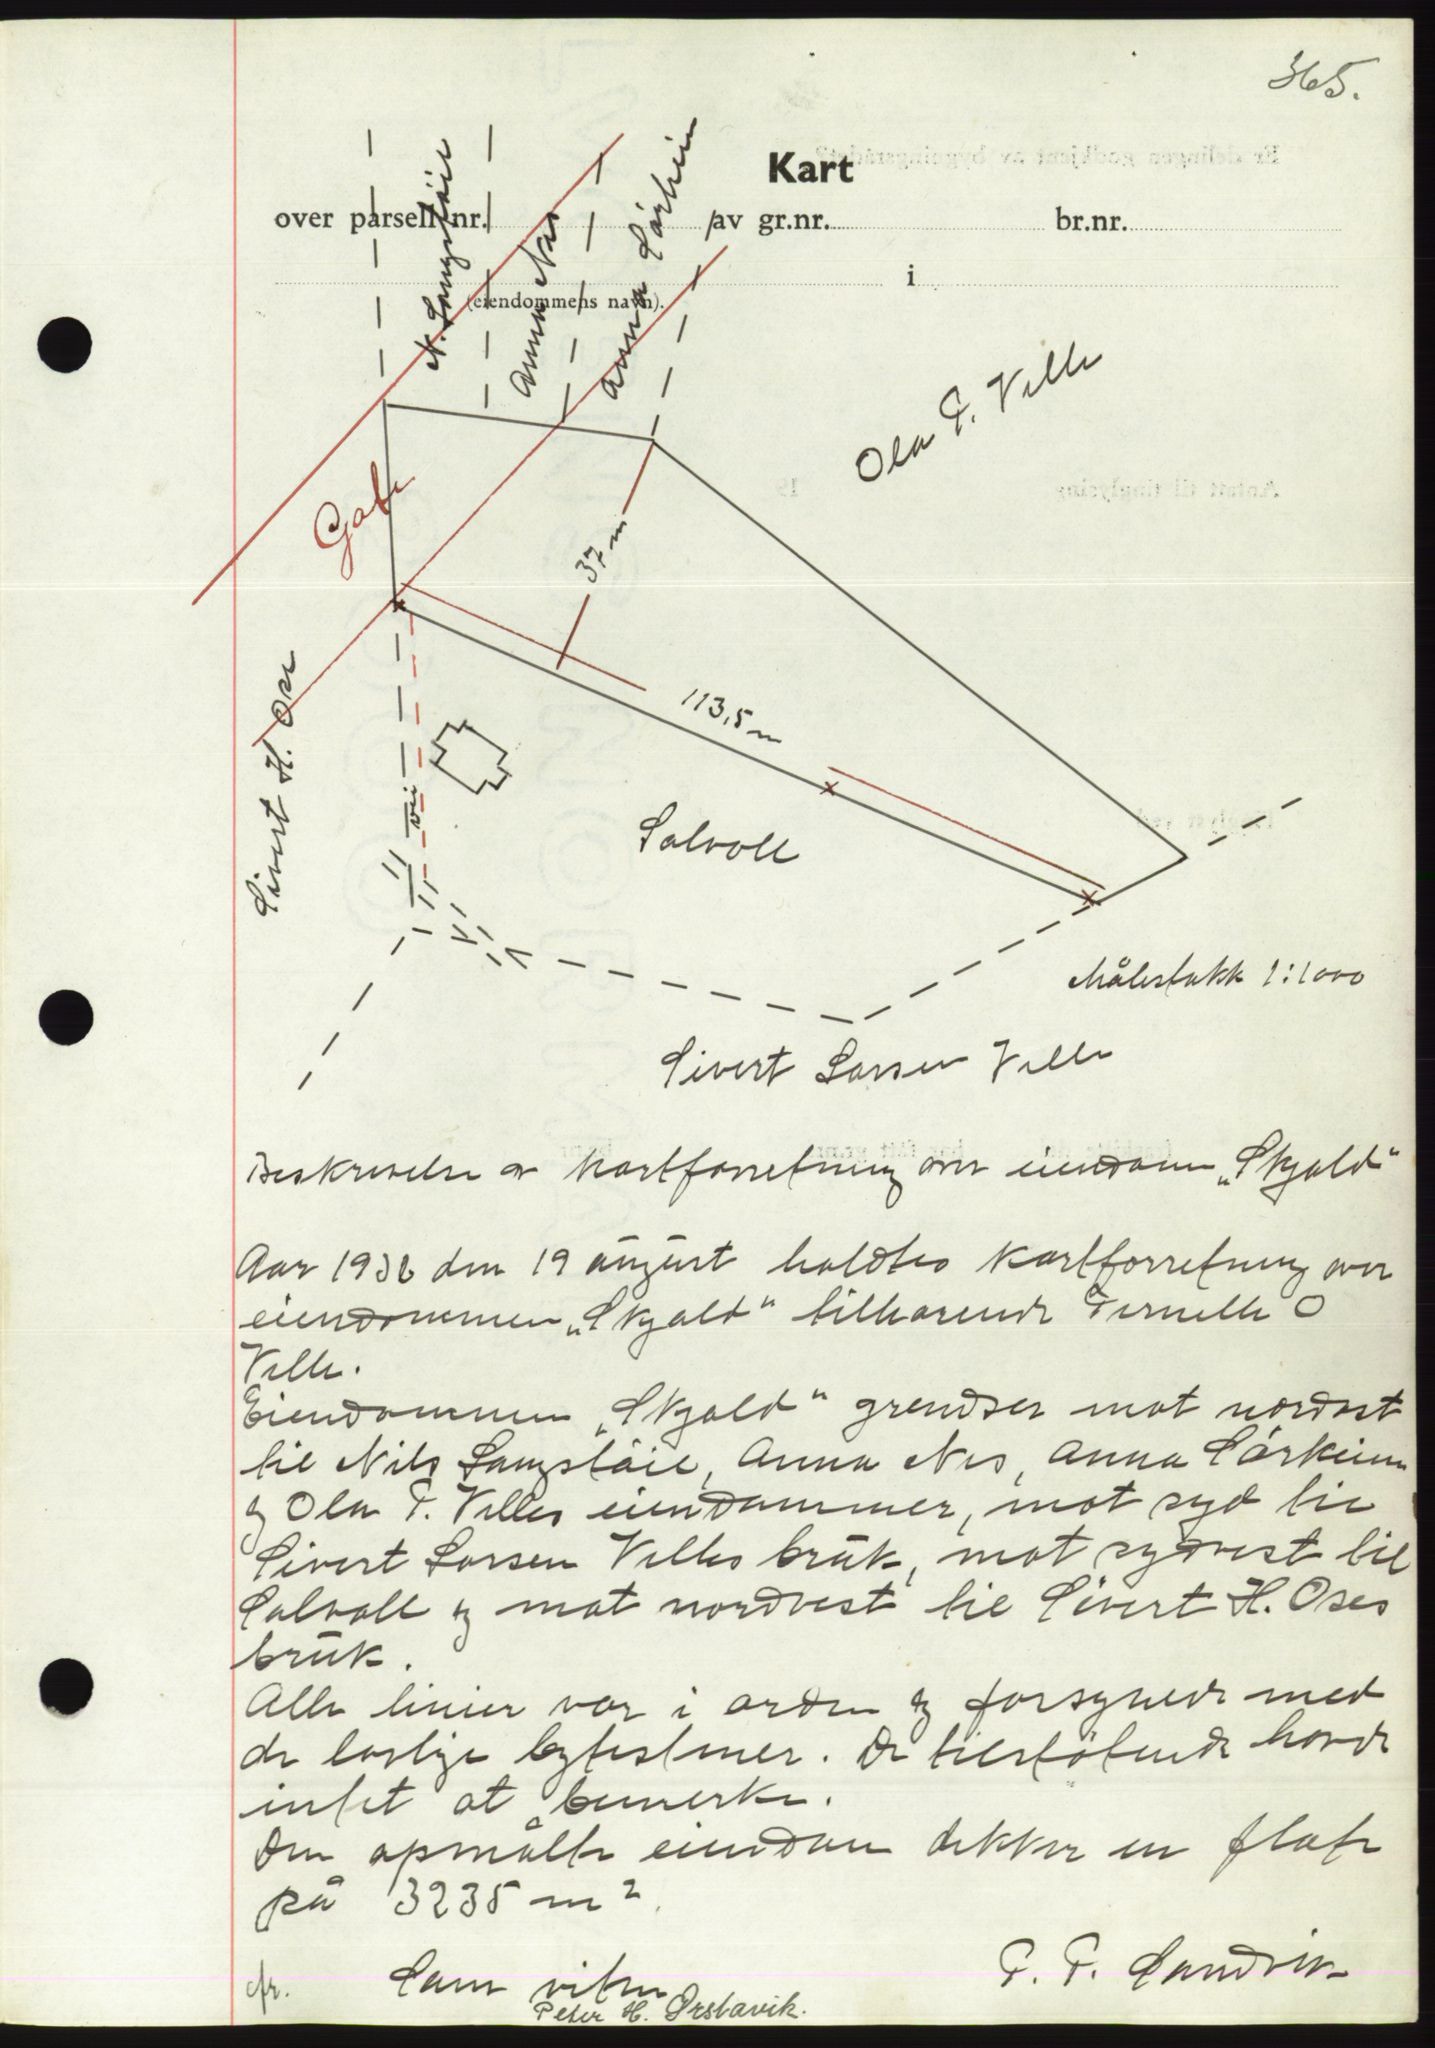 365.
Kart
over parsell nr. av gr.nr. br.nr.
i
(eiendommens navn).
N. Langstöil
Anna Nes
Anna Sörheim
Ola P. Velle
Gate
37 m
Sivert H. Ose
113,5 m
vei
Solvoll
Målestokk 1:1000
Sivert Larsen Velle
Beskrivelse av kartforretning over eiendom „Skjold“
Aar 1938 den 19 august holdtes kartforretning over
eiendommen „Skjold“ tilhørende Pernelle O
Velle.
Eiendommen „Skjold“ grendser mot nordøst
til Nils Langstöil, Anna Nes, Anna Sörheim
og Ola P. Velles eiendommer, mot syd til
Sivert Larsen Velles bruk, mot sydvest til
Solvoll og mot nordvest til Sivert H. Oses
bruk.
Alle linier var i orden og forsynede med
de lovlige bytestener. De tilstötende havde
intet at bemerke.
Den opmålte eiendom dekker en flate
på 3235 m².
Som vitne P. P. Sandvik
Peter H. Ørstavik.